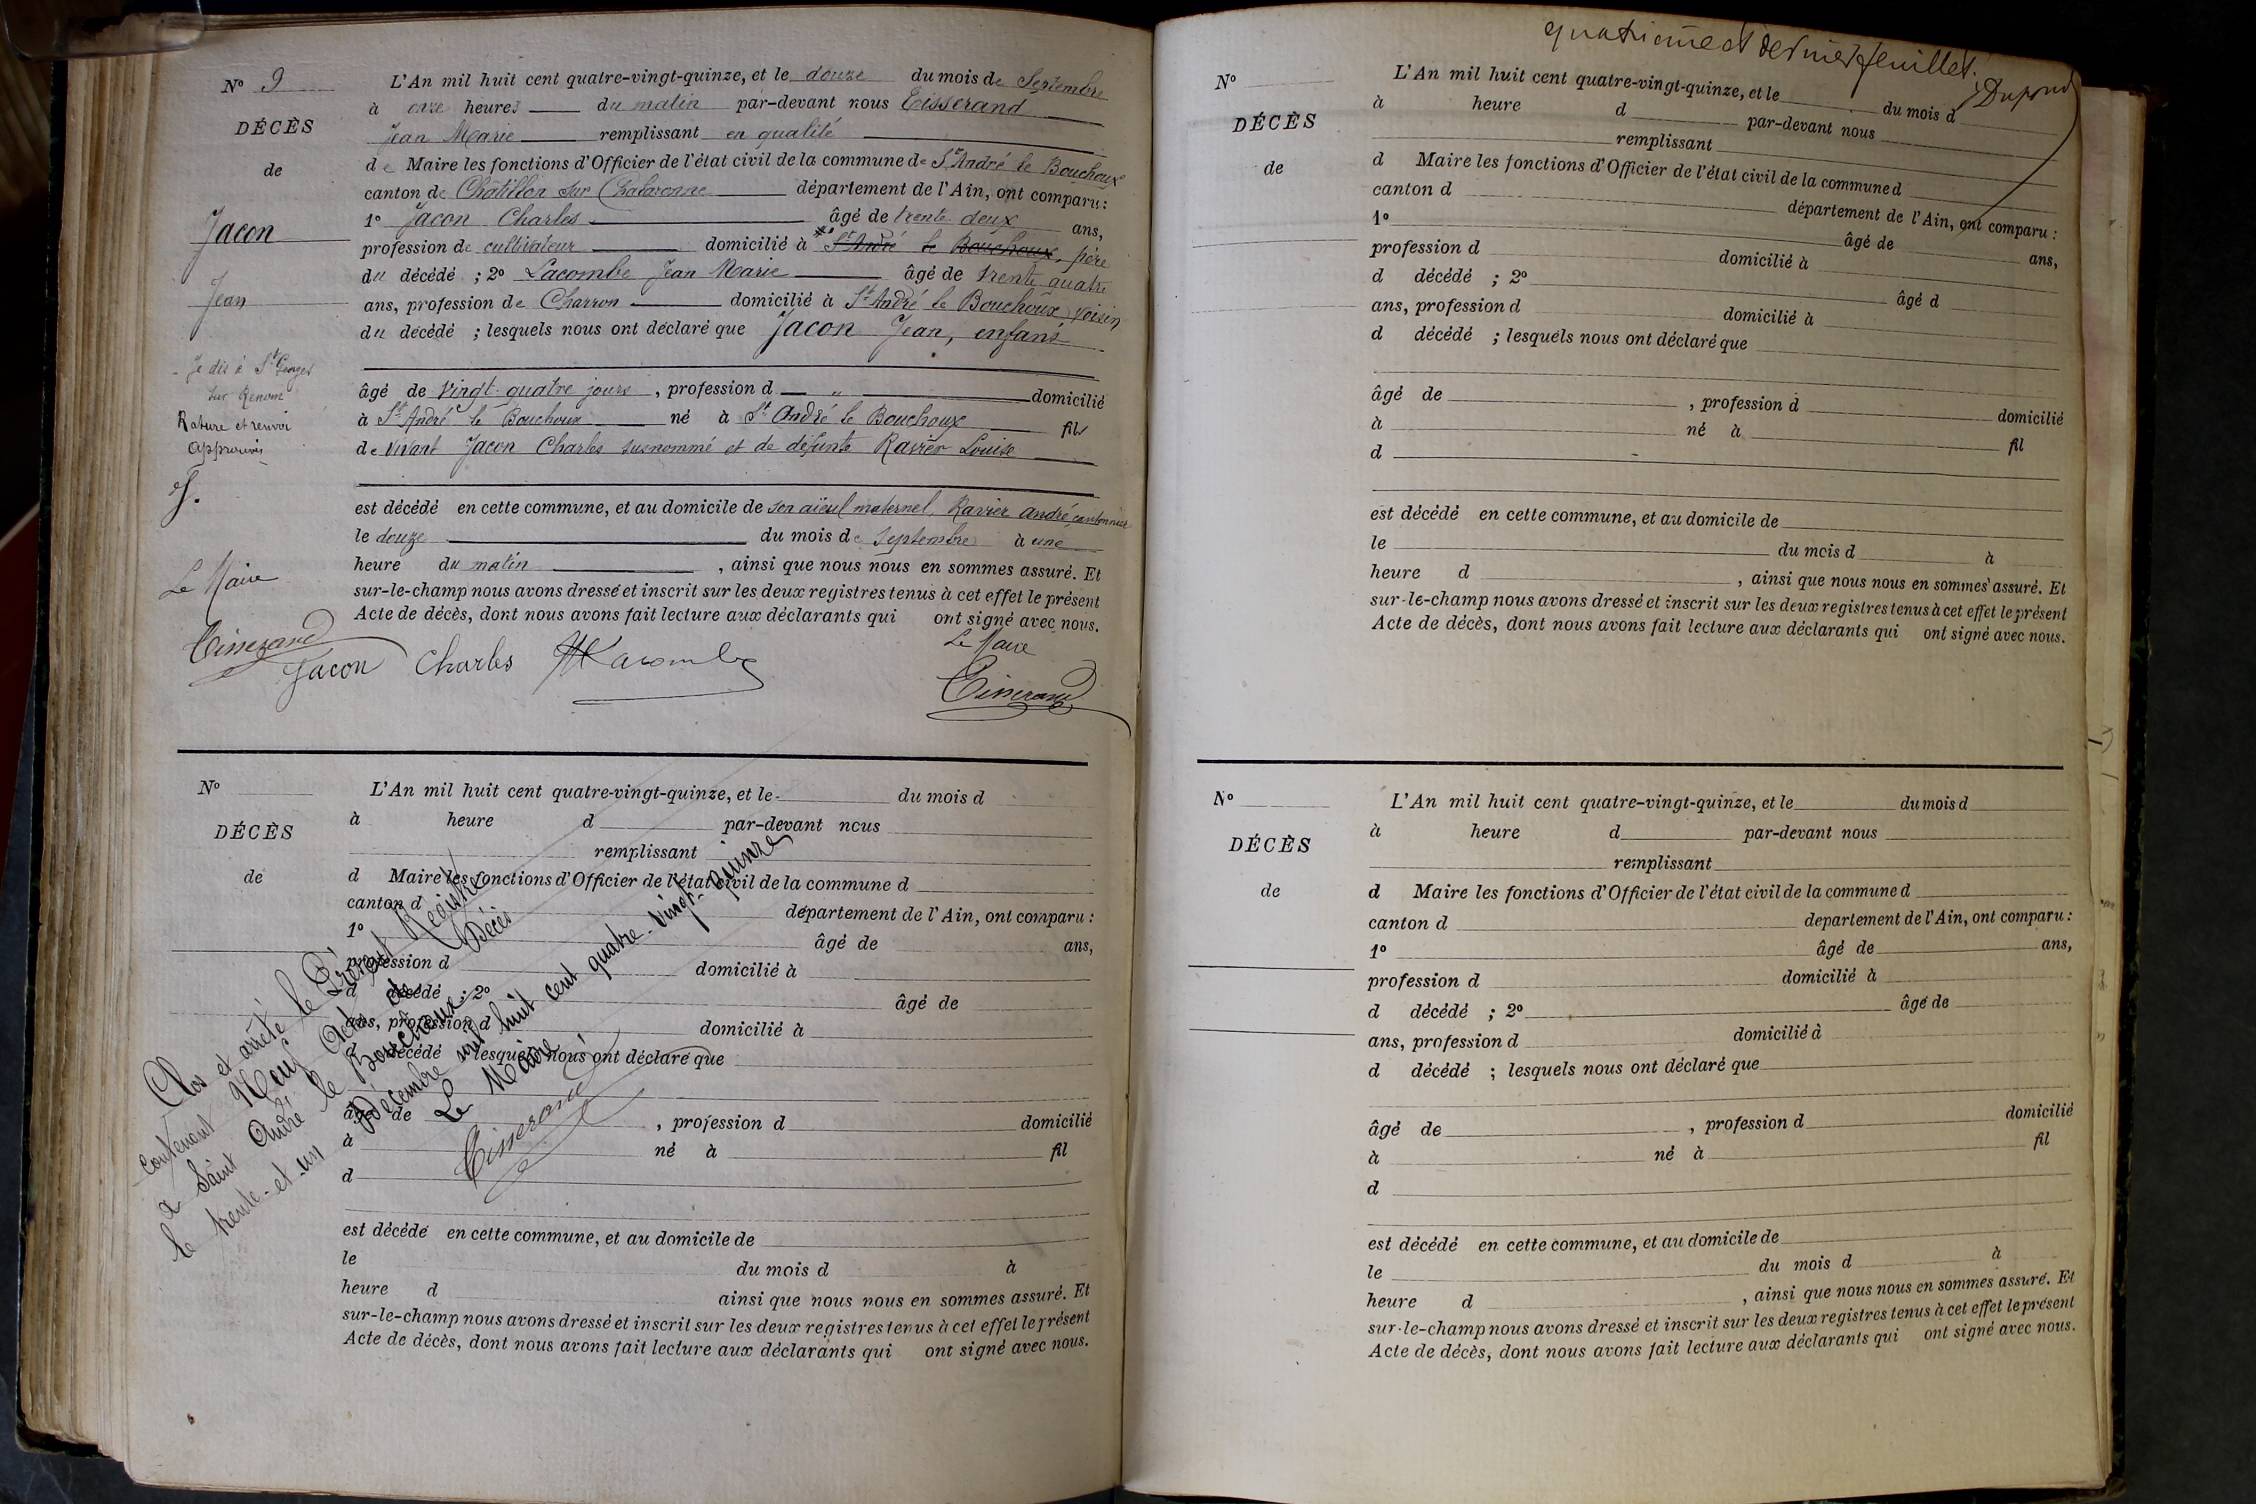 N° 9
DÉCÈS
de
Jacon
Jean
- Je dis à St Georges
sur Renom
Rature et renvoi
approuvés
Le Maire
Tisserand
L'An mil huit cent quatre-vingt-quinze, et le douze du mois de Septembre
à onze heures du matin par-devant nous Tisserand
Jean Marie remplissant en qualité
de Maire les fonctions d'Officier de l'état civil de la commune de St André le Bouchoux
canton de Châtillon sur Chalaronne département de l'Ain, ont comparu :
1° Jacon Charles âgé de trente deux ans,
profession de cultivateur domicilié à St André le Bouchoux, père
du décédé ; 2° Lacombe Jean Marie âgé de trente quatre
ans, profession de Charron domicilié à St André le Bouchoux voisin
du décédé ; lesquels nous ont déclaré que Jacon Jean, enfant
âgé de vingt quatre jours , profession d — " domicilié
à St André le Bouchoux né à St André le Bouchoux fils
de vivant Jacon Charles susnommé et de défunte Ravier Louise
est décédé en cette commune, et au domicile de son aïeul maternel, Ravier andré, cantonnier
le douze du mois de Septembre à une
heure du matin , ainsi que nous nous en sommes assuré. Et
sur-le-champ nous avons dressé et inscrit sur les deux registres tenus à cet effet le présent
Acte de décès, dont nous avons fait lecture aux déclarants qui ont signé avec nous.
Le Maire
Jacon Charles Lacombe Tisserand
N°
DÉCÈS
de
L'An mil huit cent quatre-vingt-quinze, et le du mois d
à heure d par-devant nous
remplissant
d Maire les fonctions d'Officier de l'état civil de la commune d
canton d département de l'Ain, ont comparu :
1° âgé de ans,
profession d domicilié à
d décédé ; 2° âgé de
ans, profession d domicilié à
d décédé ; lesquels nous ont déclaré que
âgé de , profession d domicilié
à né à fil
d
est décédé en cette commune, et au domicile de
le du mois d à
heure d ainsi que nous nous en sommes assuré. Et
sur-le-champ nous avons dressé et inscrit sur les deux registres tenus à cet effet le présent
Acte de décès, dont nous avons fait lecture aux déclarants qui ont signé avec nous.
Clos et arrêté le Présent Registre
contenant Neuf Actes de Décès
a Saint André le Bouchoux
le trente-et-un Décembre mil huit cent quatre-vingt-quinze
Le Maire
Tisserand
quatrième et dernier feuillet.
Dupond
N°
DÉCÈS
de
L'An mil huit cent quatre-vingt-quinze, et le du mois d
à heure d par-devant nous
remplissant
d Maire les fonctions d'Officier de l'état civil de la commune d
canton d département de l'Ain, ont comparu :
1° âgé de ans,
profession d domicilié à
d décédé ; 2° âgé d
ans, profession d domicilié à
d décédé ; lesquels nous ont déclaré que
âgé de , profession d domicilié
à né à fil
d
est décédé en cette commune, et au domicile de
le du mois d à
heure d , ainsi que nous nous en sommes assuré. Et
sur-le-champ nous avons dressé et inscrit sur les deux registres tenus à cet effet le présent
Acte de décès, dont nous avons fait lecture aux déclarants qui ont signé avec nous.
N°
DÉCÈS
de
L'An mil huit cent quatre-vingt-quinze, et le du mois d
à heure d par-devant nous
remplissant
d Maire les fonctions d'Officier de l'état civil de la commune d
canton d departement de l'Ain, ont comparu :
1° âgé de ans,
profession d domicilié à
d décédé ; 2° âgé de
ans, profession d domicilié à
d décédé ; lesquels nous ont déclaré que
âgé de , profession d domicilié
à né à fil
d
est décédé en cette commune, et au domicile de
le du mois d à
heure d , ainsi que nous nous en sommes assuré. Et
sur-le-champ nous avons dressé et inscrit sur les deux registres tenus à cet effet le présent
Acte de décès, dont nous avons fait lecture aux déclarants qui ont signé avec nous.